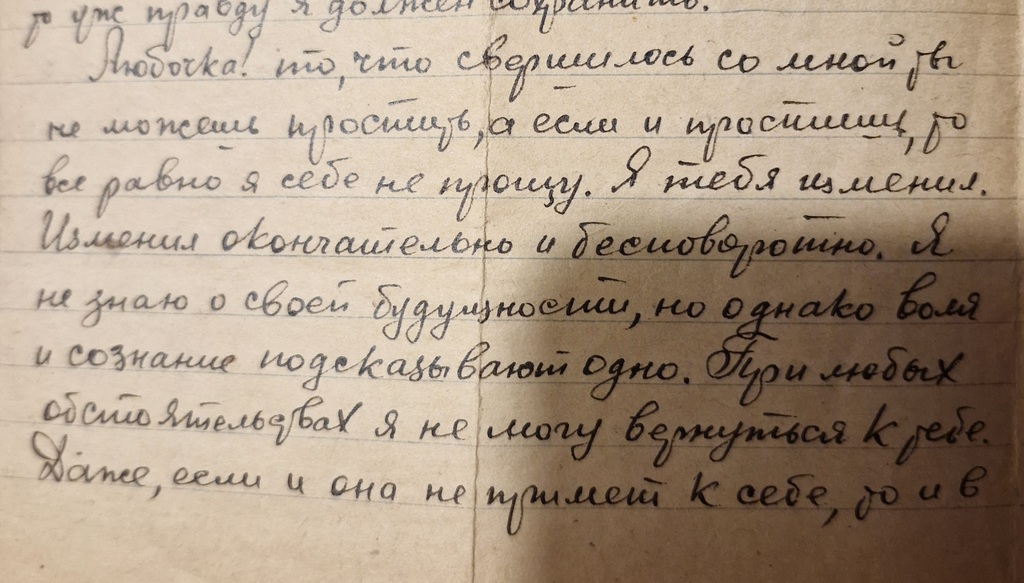 то уж правду я должен сохранить.
Любочка! то, что свершилось со мной ты
не можешь простить, а если и простишь, то
все равно я себе не прощу. Я тебя изменил.
Изменил окончательно и бесповоротно. Я
не знаю о своей будущности, но однако воля
и сознание подсказывают одно. При любых
обстоятельствах я не могу вернуться к тебе.
Даже, если и она не примет к себе, то и в